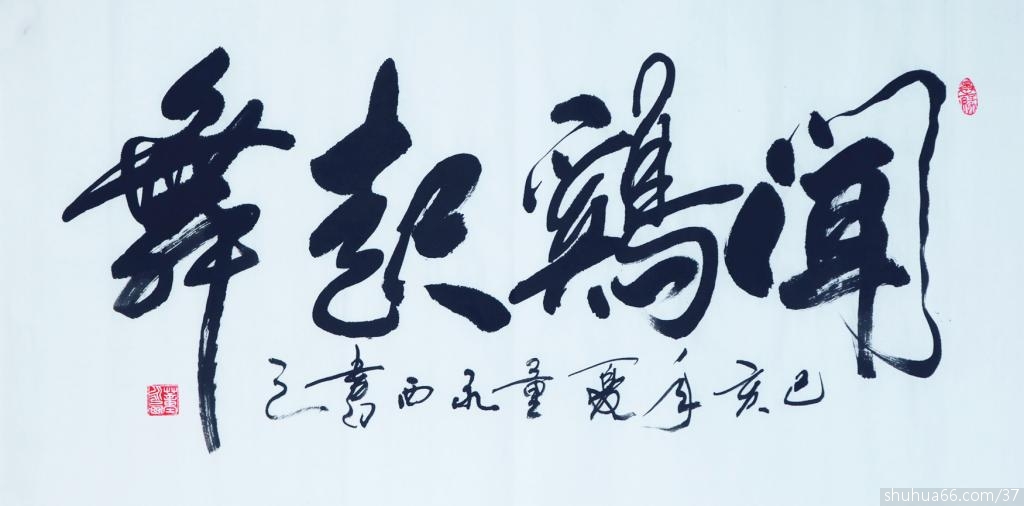 闻鷄起舞
己亥年夏董永西書之
shuhua66.com/37